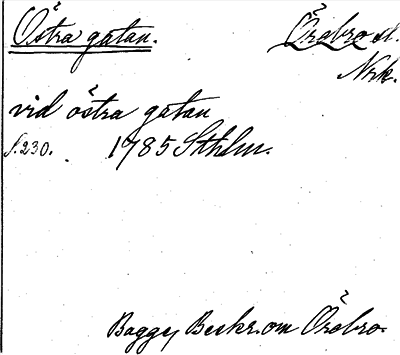 Östra gatan.
Örebro st.
Nrk.
vid östra gatan
s. 230. 1785 Sthlm.
Bagge, Beskr. om Örebro.